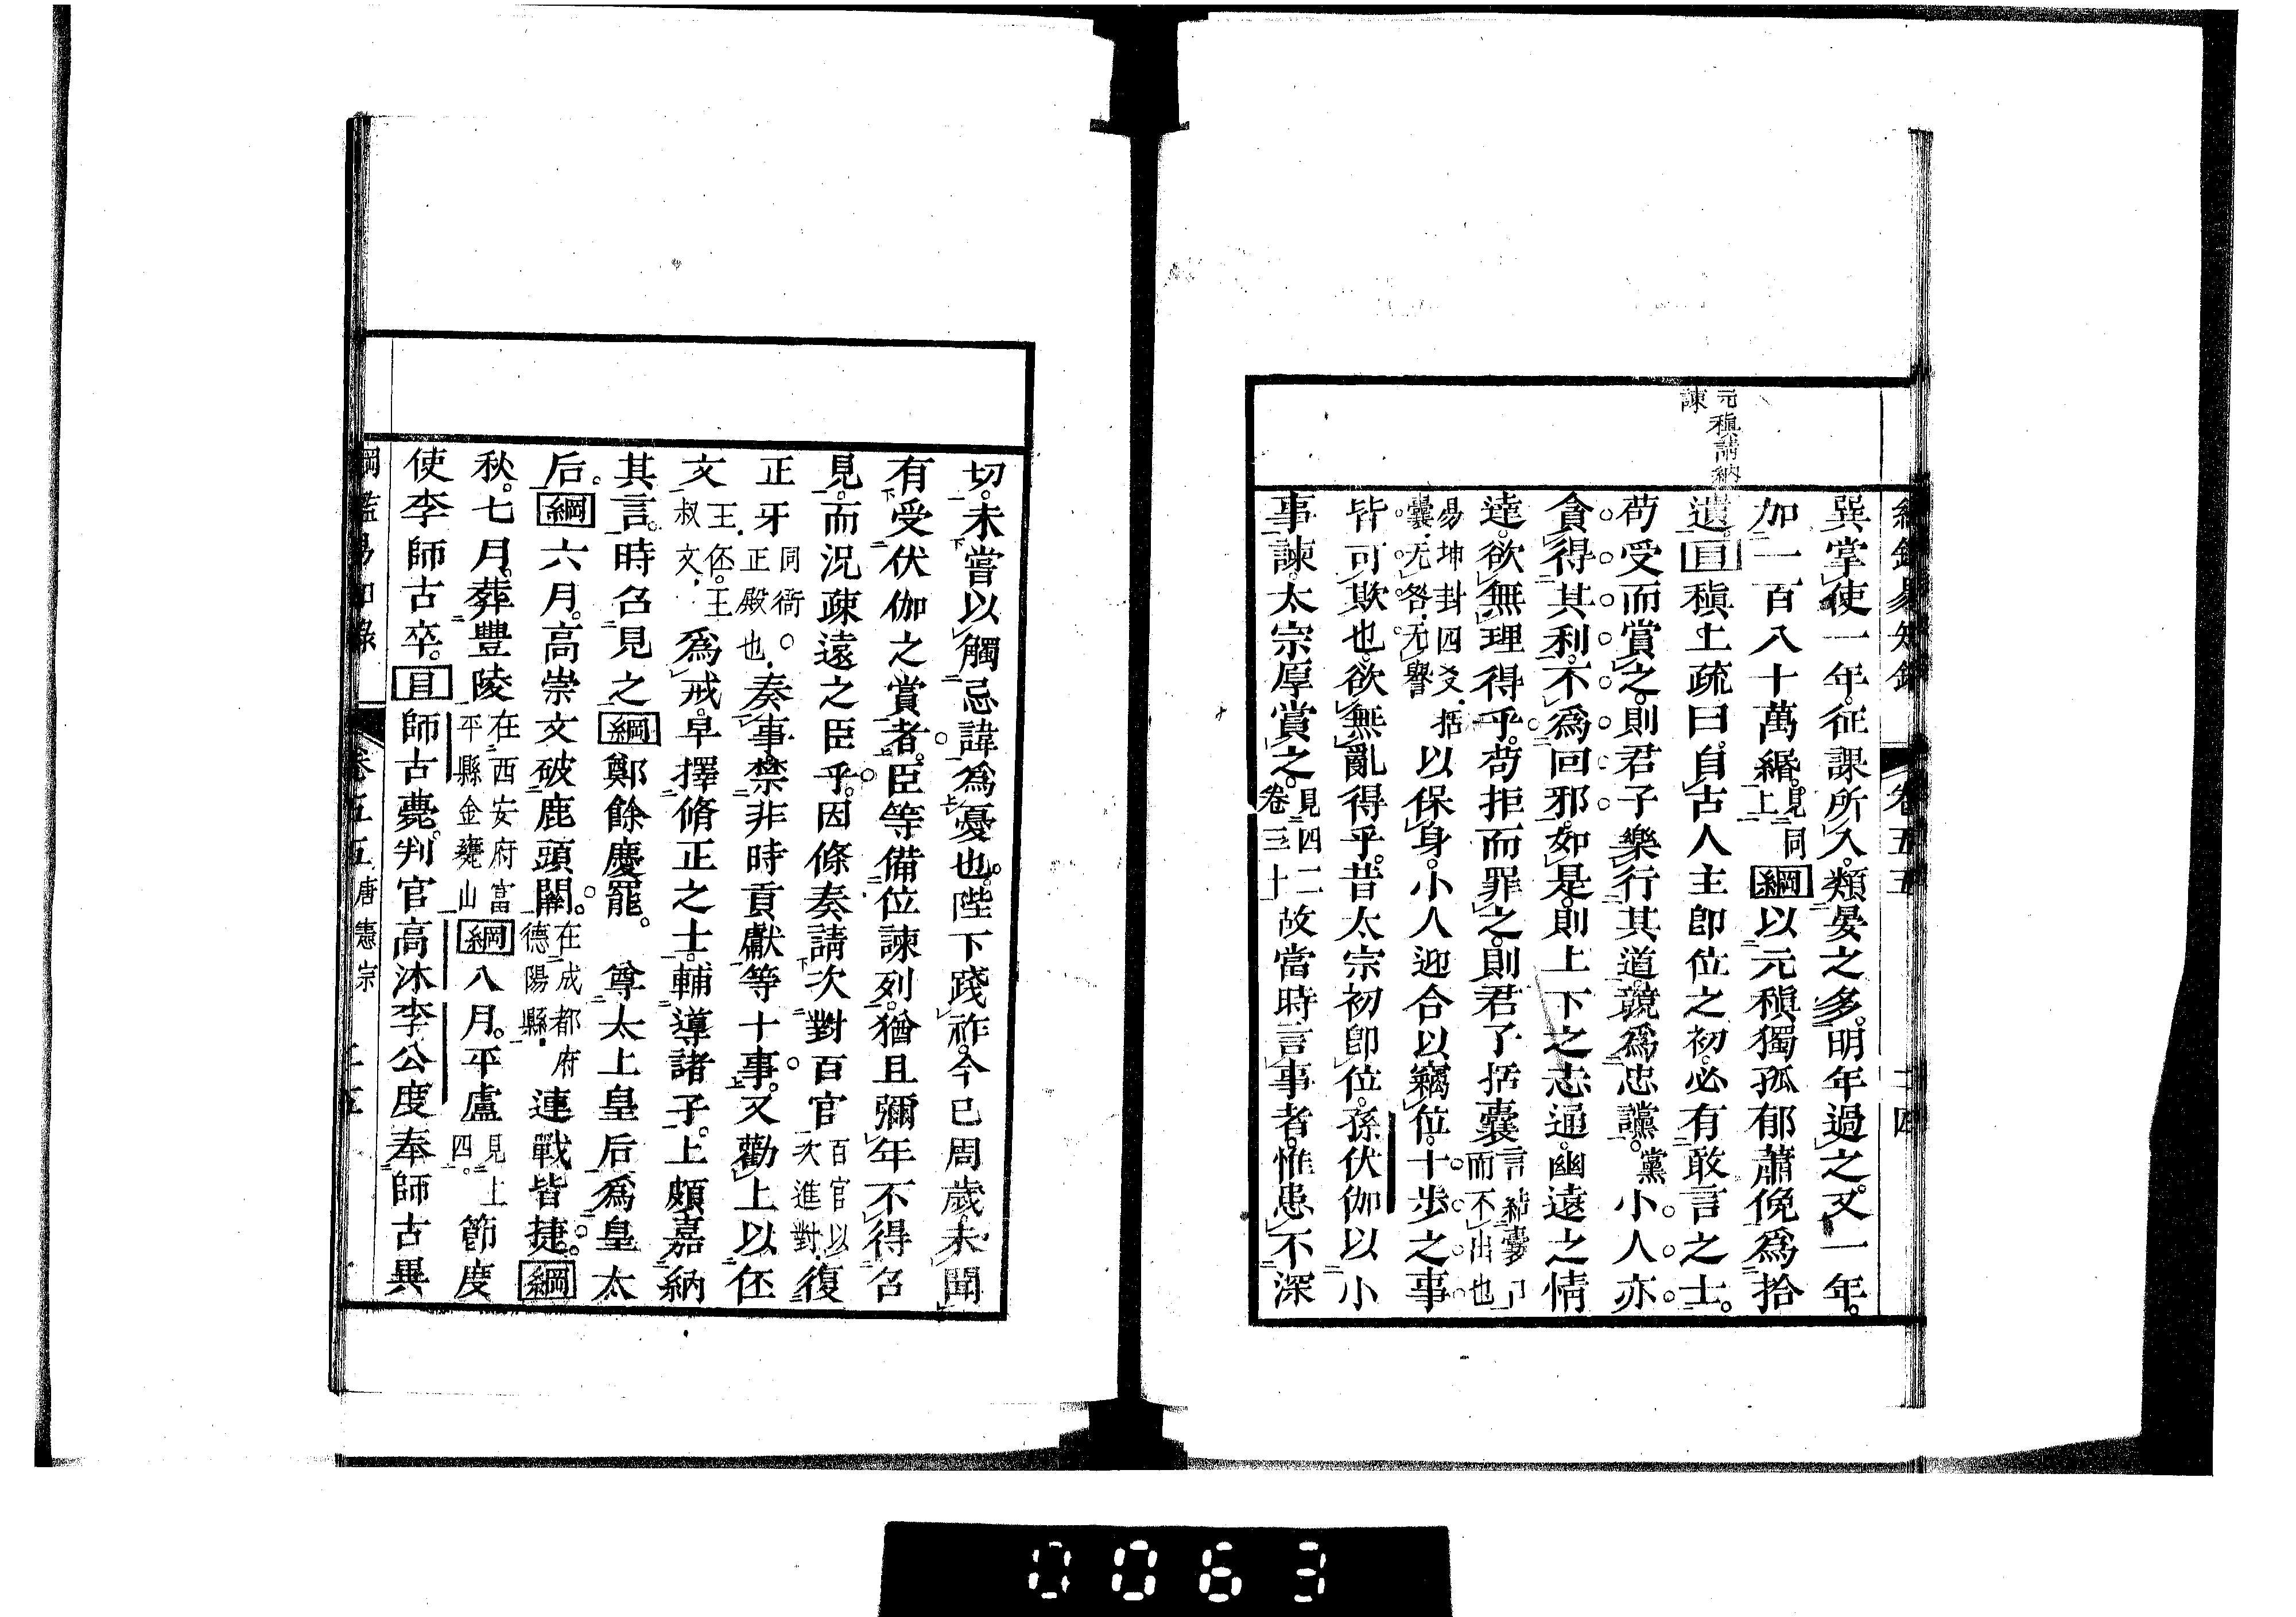 元稹請納
諫
巽掌使一年。征課所入。類晏之多。明年過之。又一年。
加一百八十萬緡。見同上綱以元稹獨孤郁蕭俛爲拾
遺。目稹上疏曰。自古人主卽位之初。必有敢言之士。
苟受而賞之。則君子樂行其道。競爲忠讜。黨小人亦
貪得其利。不爲回邪。如是。則上下之志通。幽遠之情
達。欲無理得乎。苟拒而罪之。則君子括囊而不出也
易坤卦四爻。括囊。无咎。无譽以保身。小人迎合以竊位。十步之事
皆可欺也。欲無亂得乎。昔太宗初卽位。孫伏伽以小
事諫。太宗厚賞之。見四二卷三十故當時言事者。惟患不深
卷五五
切。未嘗以觸忌諱爲憂也。陛下踐祚。今已周歲。未聞
有受伏伽之賞者。臣等備位諫列。猶且彌年不得召
見。而況疎遠之臣乎。因條奏請次對百官百官以次進對復
正牙同衙。正殿也奏事。禁非時貢獻等十事。又勸上以伾
文王伾。王叔文爲戒。早擇脩正之士。輔導諸子。上頗嘉納
其言。時召見之綱鄭餘慶罷。　尊太上皇后爲皇太
后。綱六月。高崇文破鹿頭關。在成都府德陽縣連戰皆捷。綱
秋。七月。葬豐陵在西安府富平縣金甕山綱八月。平盧見上四節度
使李師古卒。目師古薨。判官高沐李公度奉師古異
綱鑑易知錄　卷五五　唐憲宗
0063